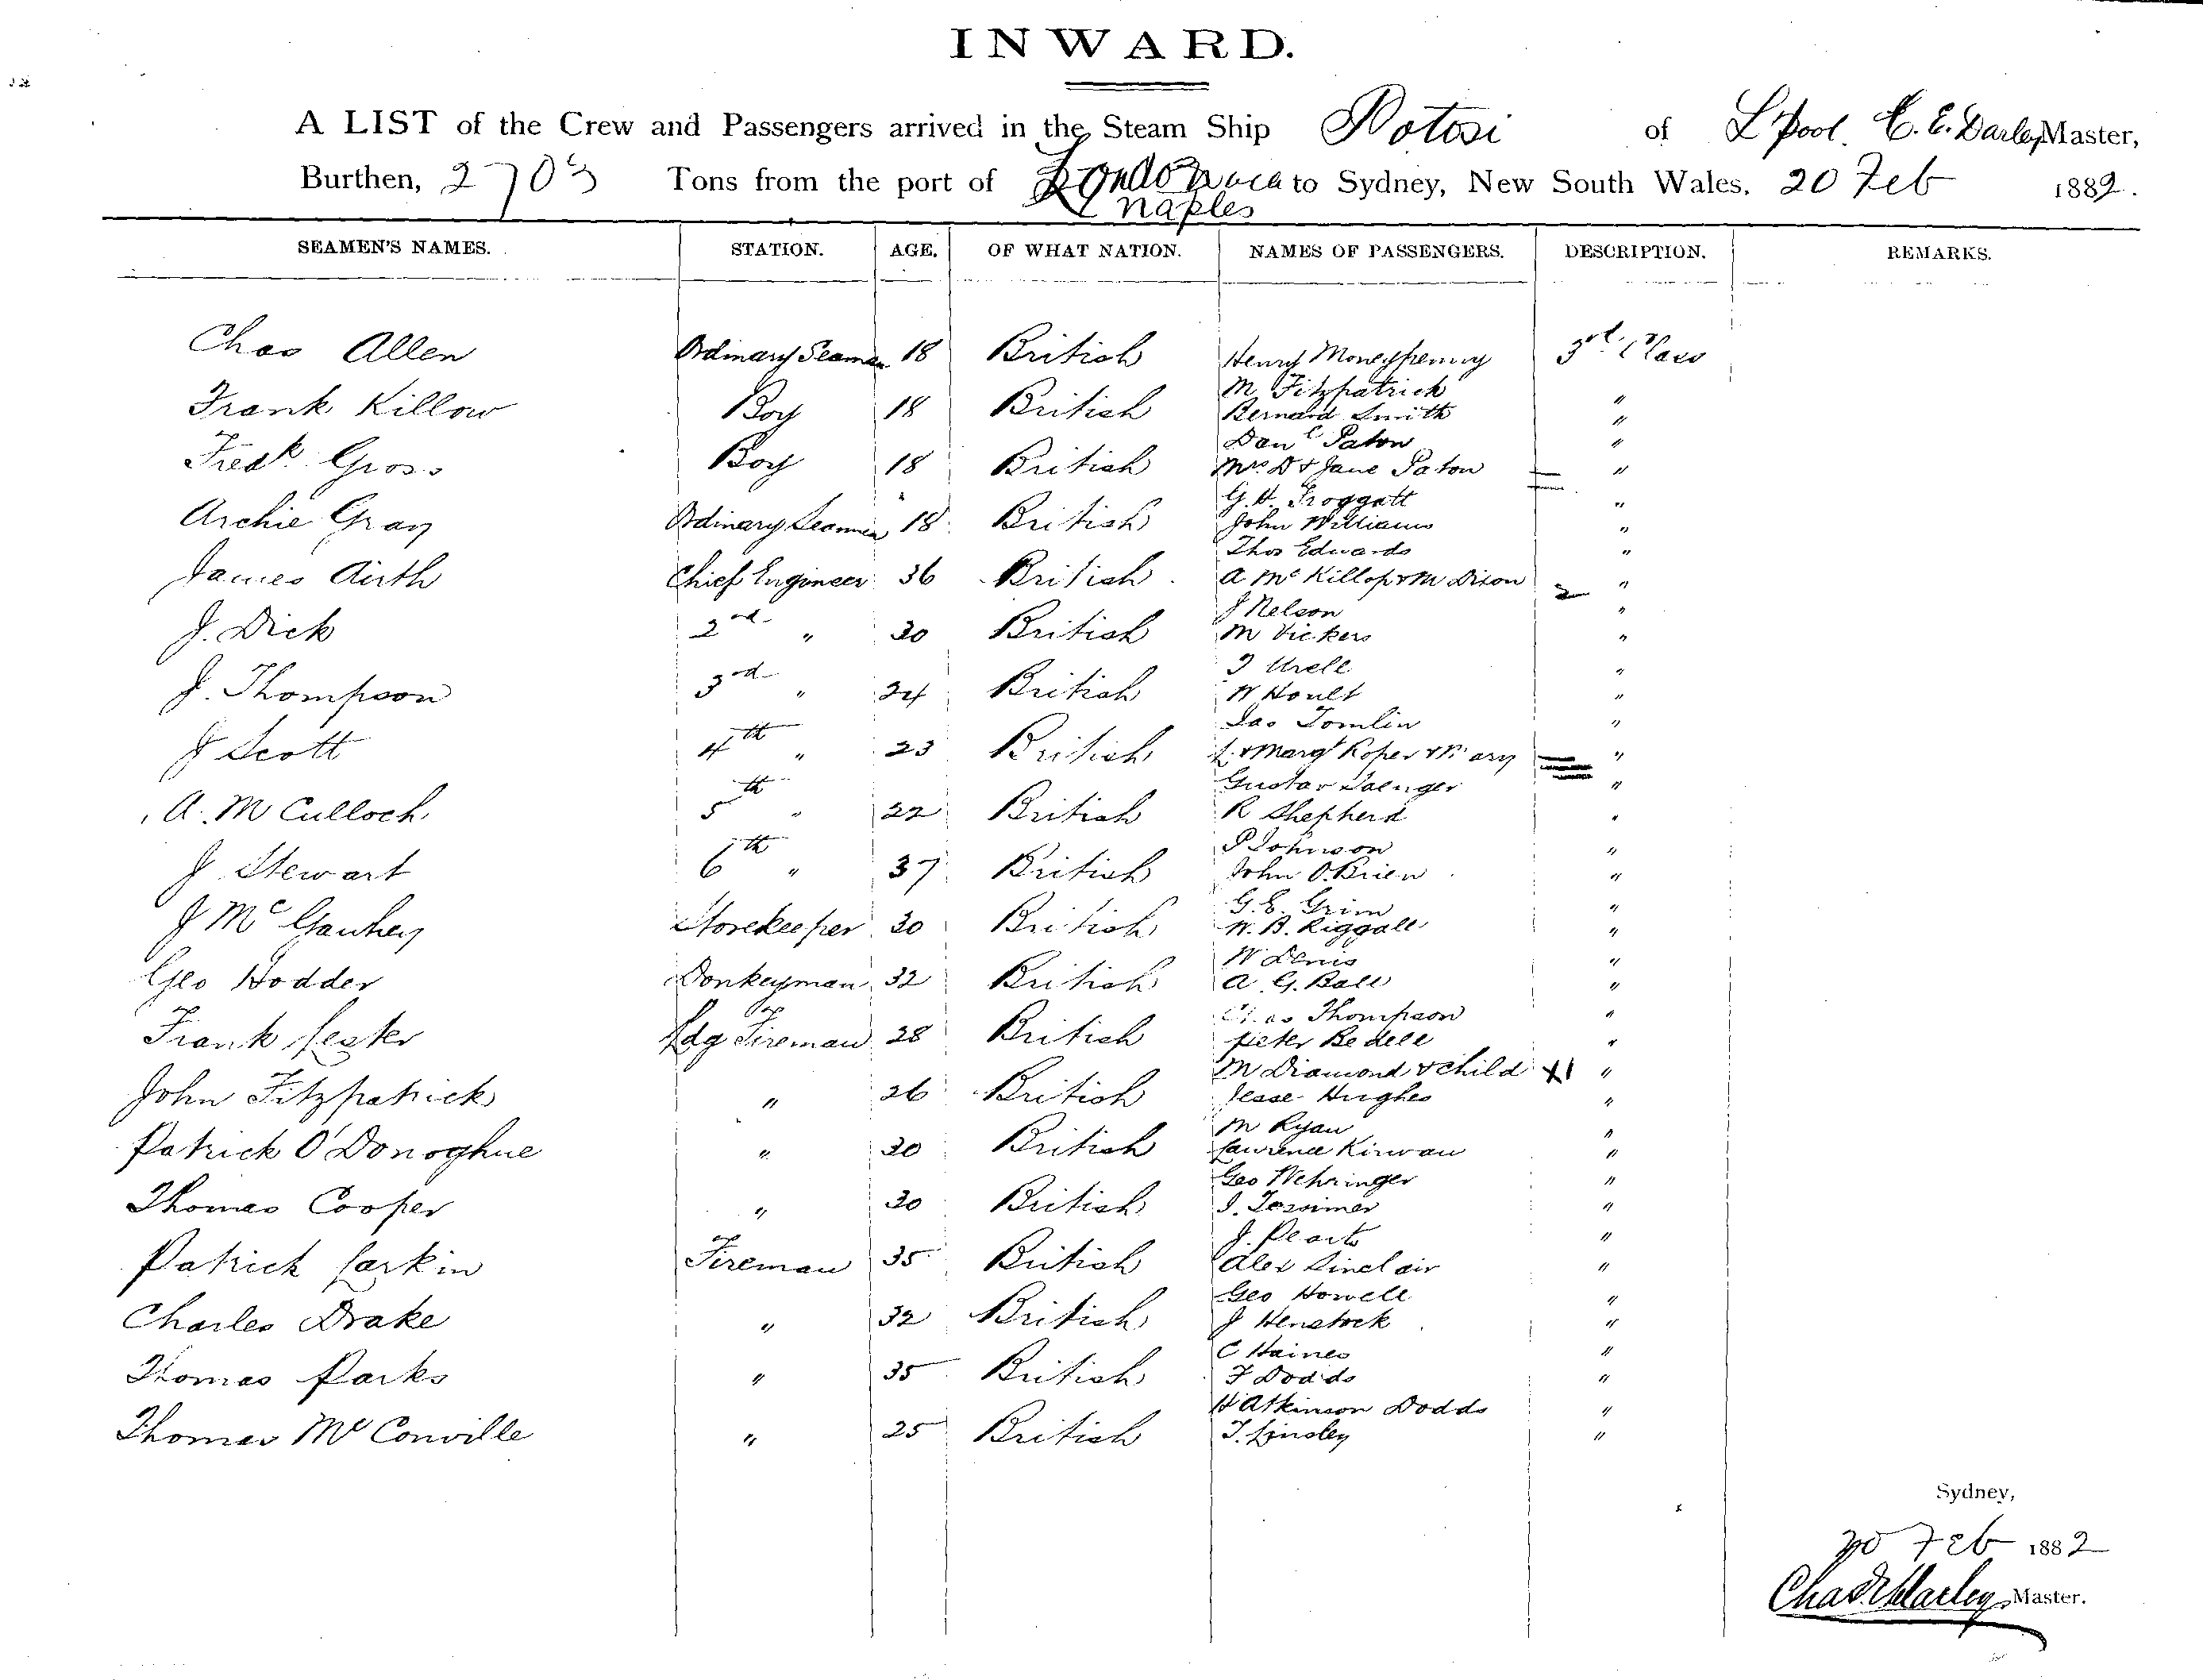 INWARD.
A LIST of the Crew and Passengers arrived in the Steam Ship Potosi of L'pool. C. E. Darley Master,
Burthen, 2703 Tons from the port of London to Sydney, New South Wales, 20 Feb 1882.
Naples
SEAMEN'S NAMES. STATION. AGE. OF WHAT NATION. NAMES OF PASSENGERS. DESCRIPTION. REMARKS.
Chas Allen Ordinary Seaman 18 British Henry Moneypenny 3rd Class
M. Fitzpatrick "
Frank Killow Boy 18 British Bernard Smith "
Danl Paton "
Fredk. Gross Boy 18 British Mrs D & Jane Paton "
G. H. Froggatt "
Archie Gray Ordinary Seaman 18 British John Williams "
Thos Edwards "
James Airth Chief Engineer 36 British A McKillop & M Dixon 2 "
J Nelson "
J. Dick 2nd " 30 British M Vickers "
J Urell "
J. Thompson 3rd " 24 British W Hoult "
Jas Tomlin "
J Scott 4th " 23 British & Margt Roper & Mary "
Gustav Saenger "
A. M Culloch 5th " 22 British R Shepherd "
P Johnson "
J Stewart 6th " 37 British John O.Brien "
G. E. Grim "
J McGauhey Storekeeper 30 British W. B. Riggall "
W Denis "
Geo Hodder Donkeyman 32 British A. G. Ball "
Chas Thompson "
Frank Lester Ldg Fireman 28 British Peter Bedell "
M Diamond & Child "
John Fitzpatrick " 26 British Jesse Hughes "
M Ryan "
Patrick O'Donoghue " 30 British Lawrence Kirwan "
Geo Wehringer "
Thomas Cooper " 30 British J. "
J. "
Patrick Larkin Fireman 35 British Alex Sinclair "
Geo Howell "
Charles Drake " 32 British J Henstock "
C Haines "
Thomas Parks " 35 British F Dodds "
H Atkinson Dodds "
Thomas McConville " 25 British T. Linsley "
Sydney,
20 Feb 1882
Chas E Darley Master.